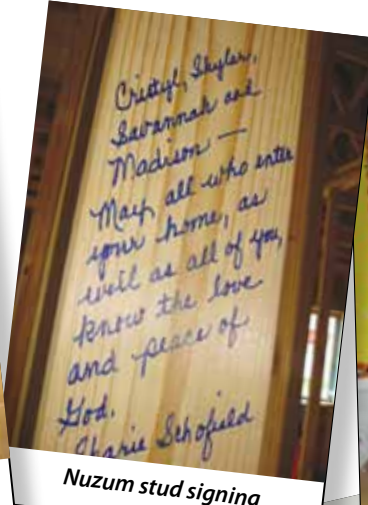 Cristyl, Skylar,
Savannah and
Madison —
May all who enter
your home, as
well as all of you,
know the love
and peace of
God.
Schofield
Nuzum stud signing